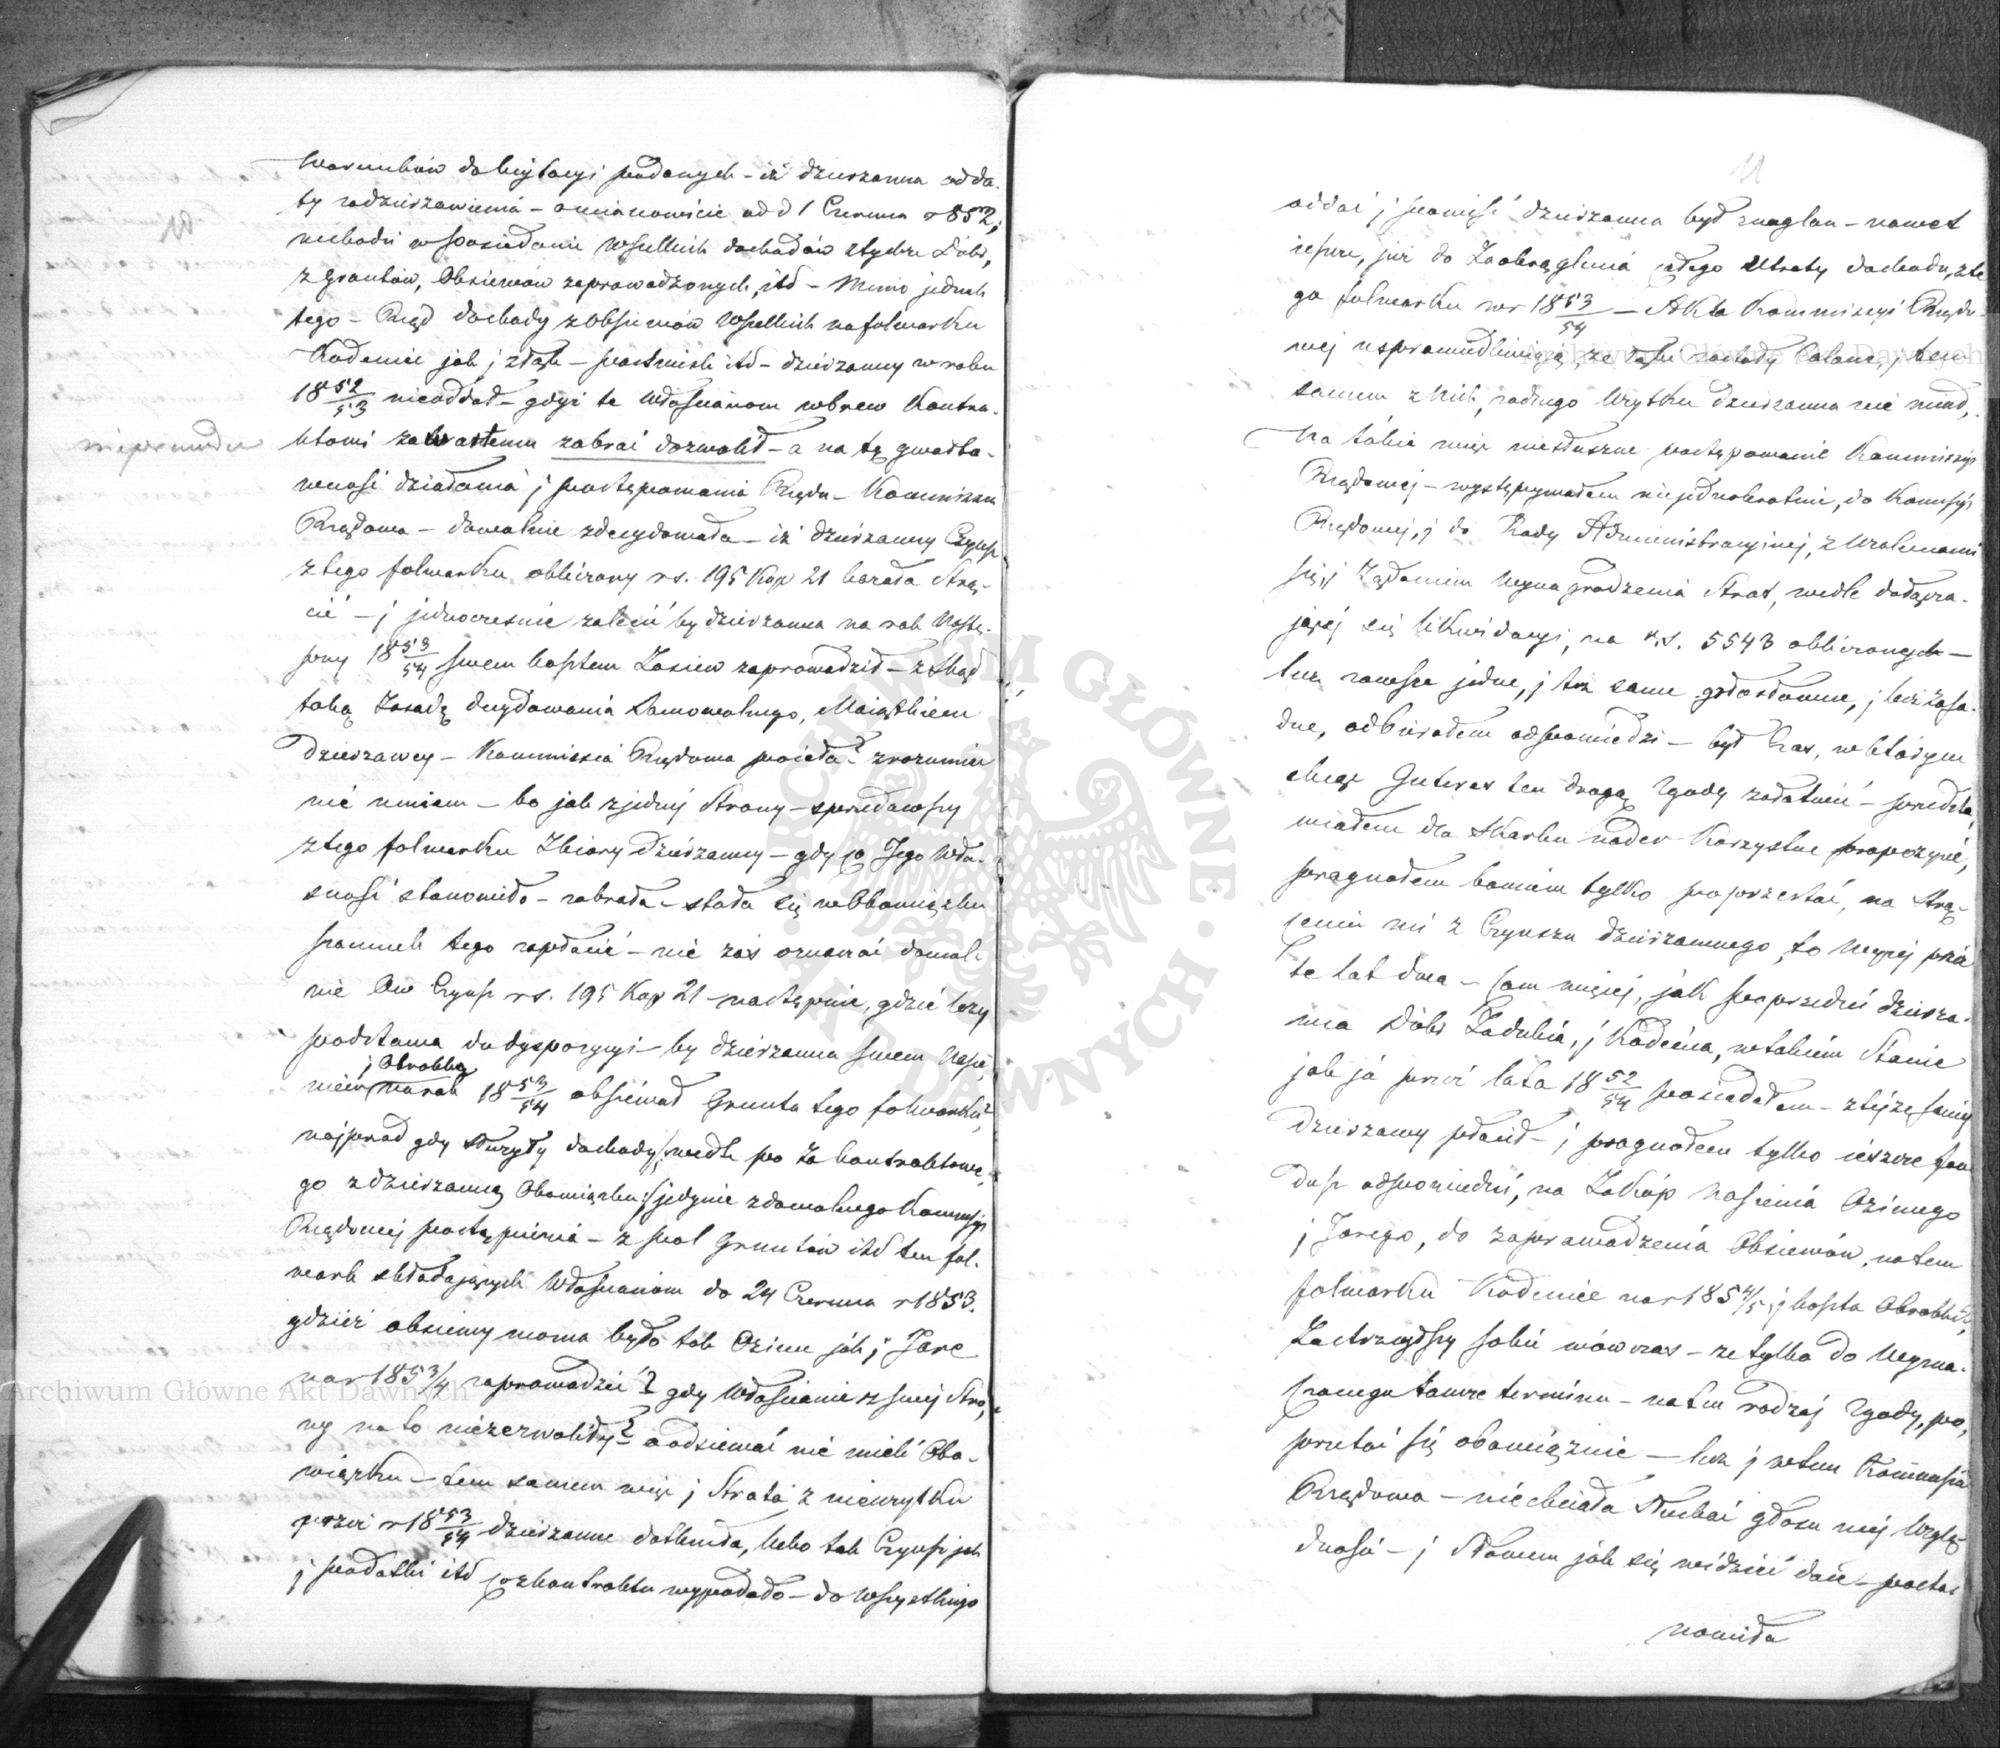 Warunków do licytacyi podanych – iż dzierzawca od da-
ty zadzierzawienia – a mianowicie od d 1 Czerwca r 852,
wchodzi w posiadanie wszelkich dochodów z tychże Dóbr,
z gruntów, Obsiewów zaprowadzonych, itd – Mimo jednak
tego – Rząd dochody z Obsiewów wszelkich na folwarku
Kodeniec jak i z łąk – pastwisk itd – dzierzawcy w roku
18 52/53 nieoddał – gdyż te Włościanom wbrew Kontra-
nieprawda
ktowi zawartemu zabrać dozwolił – a na tę gwałto-
wność działania i postępowania Rządu – Kommissya
Rządowa – dowolnie zdecydowała – iż dzierzawcy Czynsz
z tego folwarku obliczony rs. 195 Kop 21 kazała strą-
cić – i jednocześnie zalecić by dzierzawca na rok Nastę-
pny 18 53/54 swem kosztem Zasiew zaprowadził – z skąd
taką Zasadę decydowania Samowolnego, Majątkiem
dzierzawcy – Kommissia Rządowa powzięła? zrozumieć
nie umiem – bo jak z jednej Strony – sprzedawszy
z tego folwarku Zbiory dzierzawcy – gdy co Jego Wła-
sność stanowiło – zabrała – stała się w Obowiązku
szacunek tego zapłacić – nie zaś oznaczać dowol-
nie Ów Czynsz rs. 195 Kop 21 – następnie, gdzie leży
podstawa do dyspozycyi – by dzierzawca swem Nasie-
i Obrobką
niem na rok 18 53/54 obsiewał Grunta tego folwarku?,
najprzód gdy służyły dochody, wedle po Za kontraktowe-
go z dzierzawcą Obowiązku; jedynie z dowolnego Kommissyi
Rządowej postąpienia – z pól Gruntów itd ten fol-
wark składających Włościanom do 24 Czerwca r 1853.
gdzież obsiewy można było tak Ozime jak i Jare
na r 1853/4 zaprowadzić? gdy Włościanie z swej Stro-
ny na to niezezwolili? a odsiewać nie mieli Obo-
wiązku – tem samem więc i Strata z nieużytku
przez r 18 53/54 dzierzawcę dotknęła, lubo tak Czynsz jak
i podatki itd co z kontraktu wypadało – do wszystkiego
11
oddać i ponieść dzierzawca był znaglon – nawet
jeszcze, już do Zaokrąglenia całego Utraty dochodu, z te-
go folwarku w r 18 53/54 – Akta Kommissyi Rządo-
wej usprawiedliwiają, że łąki zostały zalane, i tem
samem z nich, żadnego Użytku dzierzawca nie miał,
Na takie więc niesłuszne postępowanie Kommissyi
Rządowej – występywałem niejednokrotnie, do Komissyi
Rządowej, i do Rady Administracyjnej, z Użaleniami
się, i żądaniem Wynagrodzenia Strat, wedle dołącza-
jącej się likwidacyi, na rs. 5543 obliczonych –
lecz zawsze jedne, i też same gołosłowne, i bez zasa-
dne, odbierałem odpowiedzi – był Czas, w którym
chcąc Interes ten drogą Zgody załatwić – przedsta-
wiałem dla Skarbu nader Korzystne propozycie,
pragnąłem bowiem tylko poprzestać, na strą-
ceniu mi z Czynszu dzierzawnego, to Więcej przez
te lat dwa – com więcej, jak poprzedni dzierza-
wca Dóbr Zadubia, i Kodeńca, w takiem Stanie
jak ja przez lata 18 52/54 posiadałem – z tejże samej
dzierzawy płacił – i pragnąłem tylko jeszcze fun-
dusz odpowiedni, na Zakup Nasienia Ozimego
i Jarego, do zaprowadzenia Obsiewów, na tem
folwarku Kodeniec na r 1854/5 i koszta Obrobki,
Zastrzegłszy sobie wówczas – że tylko do Wyzna-
czonego tamże terminu – na ten rodzaj Zgody, po-
przestać się obowiąznie – lecz i w tem Kommissia
Rządowa – niechciała Słuchać głosu mej Wzglę-
dności – i Słowem jak się widzieć daie – posta-
nowiła